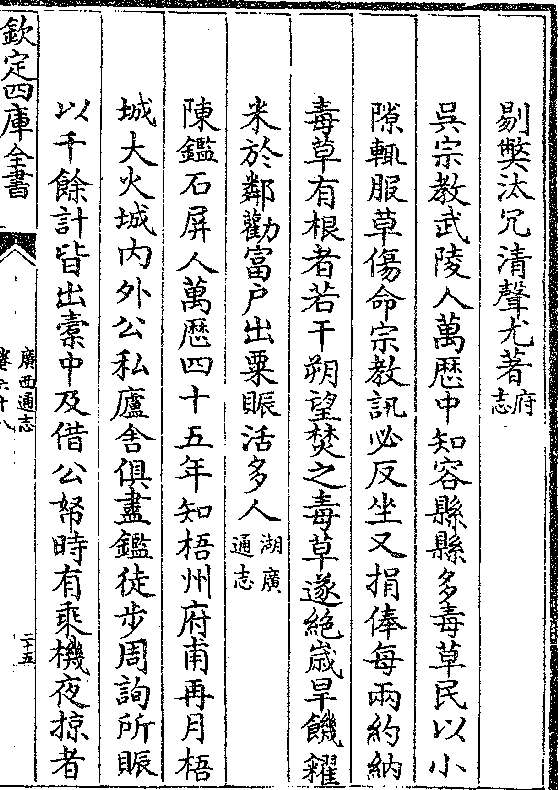 剔獘汰冗清聲尤著府志
吳宗教武陵人萬歷中知容縣縣多毒草民以小
隙輒服草傷命宗教訊必反坐又捐俸每兩約納
毒草有根者若干朔望焚之毒草遂絕歲旱饑糴
米於鄰勸富戶出粟賑活多人湖廣通志
陳鑑石屏人萬歷四十五年知梧州府甫再月梧
城大火城内外公私廬舍俱盡鑑徒步周詢所賑
以千餘計皆出槖中及借公帑時有乘機夜掠者
欽定四庫全書
廣西通志
卷六十八
二十五